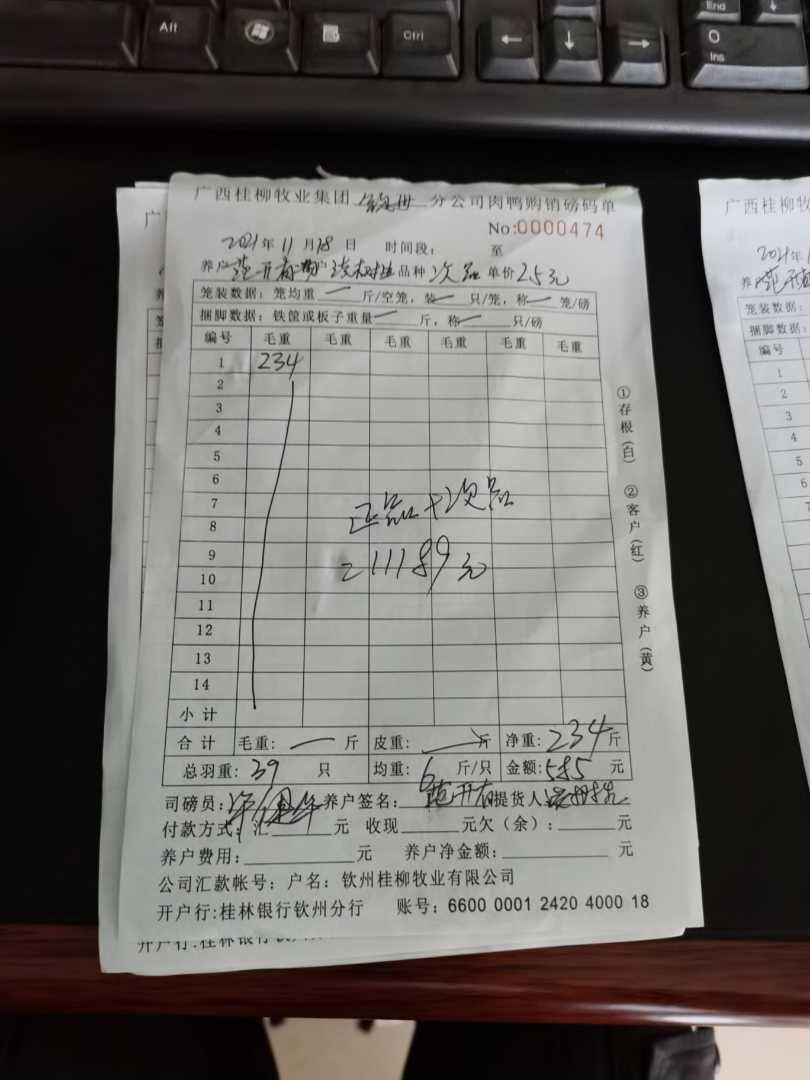 Alt
Ctrl
←
↓
→
End
↓
O
Ins
广西桂柳牧业集团 分公司肉鸭购销磅码单
No:0000474
2021年11月18日 时间段: 至
养户范开有 品种次品 单价2.5元
笼装数据: 笼均重 — 斤/空笼, 装 — 只/笼, 称 — 笼/磅
捆脚数据: 铁筐或板子重量 — 斤, 称 — 只/磅
编号 毛重 毛重 毛重 毛重 毛重 毛重
1 234
2
3
4
5
6
7
8
9
10
11
12
13
14
正品+次品
=11189元
小计
合计 毛重: — 斤 皮重: — 斤 净重: 234斤
总羽重: 39 只 均重: 6 斤/只 金额: 585 元
司磅员: 养户签名: 范开有 提货人
付款方式: 汇 元 收现 元欠(余): 元
养户费用: 元 养户净金额: 元
公司汇款帐号: 户名: 钦州桂柳牧业有限公司
开户行:桂林银行钦州分行 账号: 6600 0001 2420 4000 18
①存根(白) ②客户(红) ③养户(黄)
广西桂柳牧
2021年1
养户范开有
笼装数据:
捆脚数据:
编号
1
2
3
4
5
6
7
8
9
10
11
12
13
14